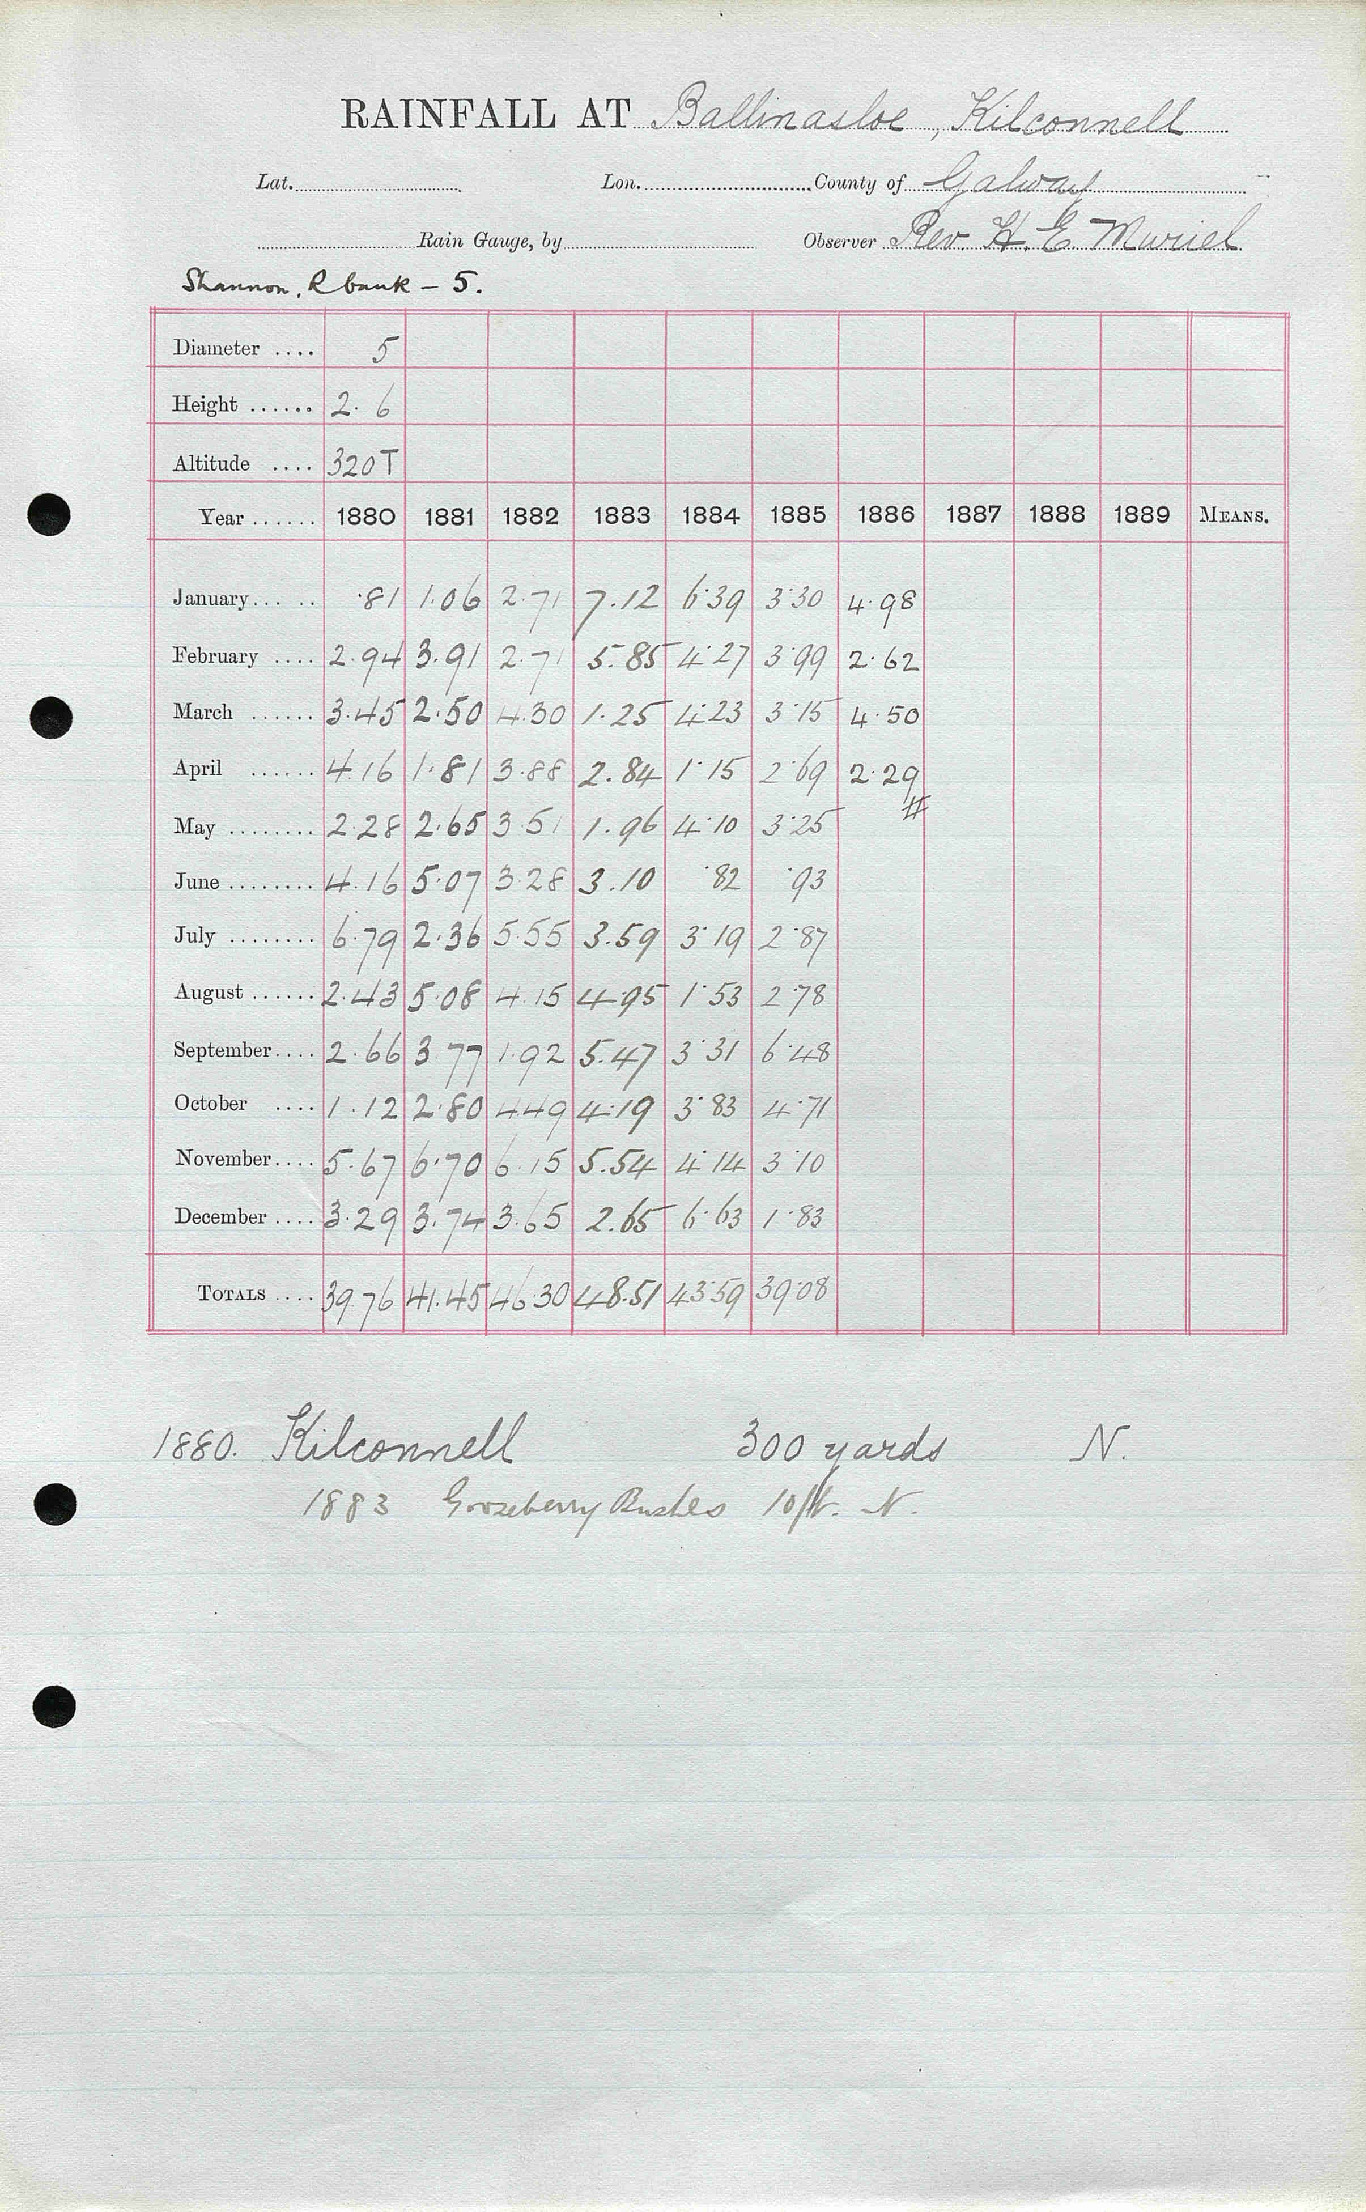 RAINFALL AT Ballinasloe, Kilconnell
Lat. Lon. County of Galway
Rain Gauge, by Observer Rev. H. E. Muriel
Shannon, R bank - 5.
Diameter .... 5
Height ...... 2. 6
Altitude .... 320T
Year ...... 1880 1881 1882 1883 1884 1885 1886 1887 1888 1889 MEANS.
January ... .. ·81 1.06 2.71 7.12 6·39 3·30 4.98
February .... 2.94 3.91 2.71 5.85 4·27 3·99 2.62
March ...... 3.45 2.50 4.30 1.25 4·23 3·15 4.50
April ...... 4.16 1.81 3.88 2.84 1·15 2·69 2.29
May ........ 2.28 2.65 3.51 1.96 4·10 3·25 #
June ........ 4.16 5.07 3.28 3.10 ·82 ·93
July ........ 6.79 2.36 5.55 3.59 3·19 2·87
August ...... 2.43 5.08 4.15 4.95 1·53 2·78
September .... 2.66 3.77 1.92 5.47 3·31 6·48
October .... 1.12 2.80 4.49 4.19 3·83 4·71
November .... 5.67 6.70 6.15 5.54 4·14 3·10
December .... 3.29 3.74 3.65 2.65 6·63 1·83
TOTALS .... 39.76 41.45 46.30 48.51 43·59 39·08
1880. Kilconnell 300 yards N.
1883 Gooseberry Bushes 10 ft. N.